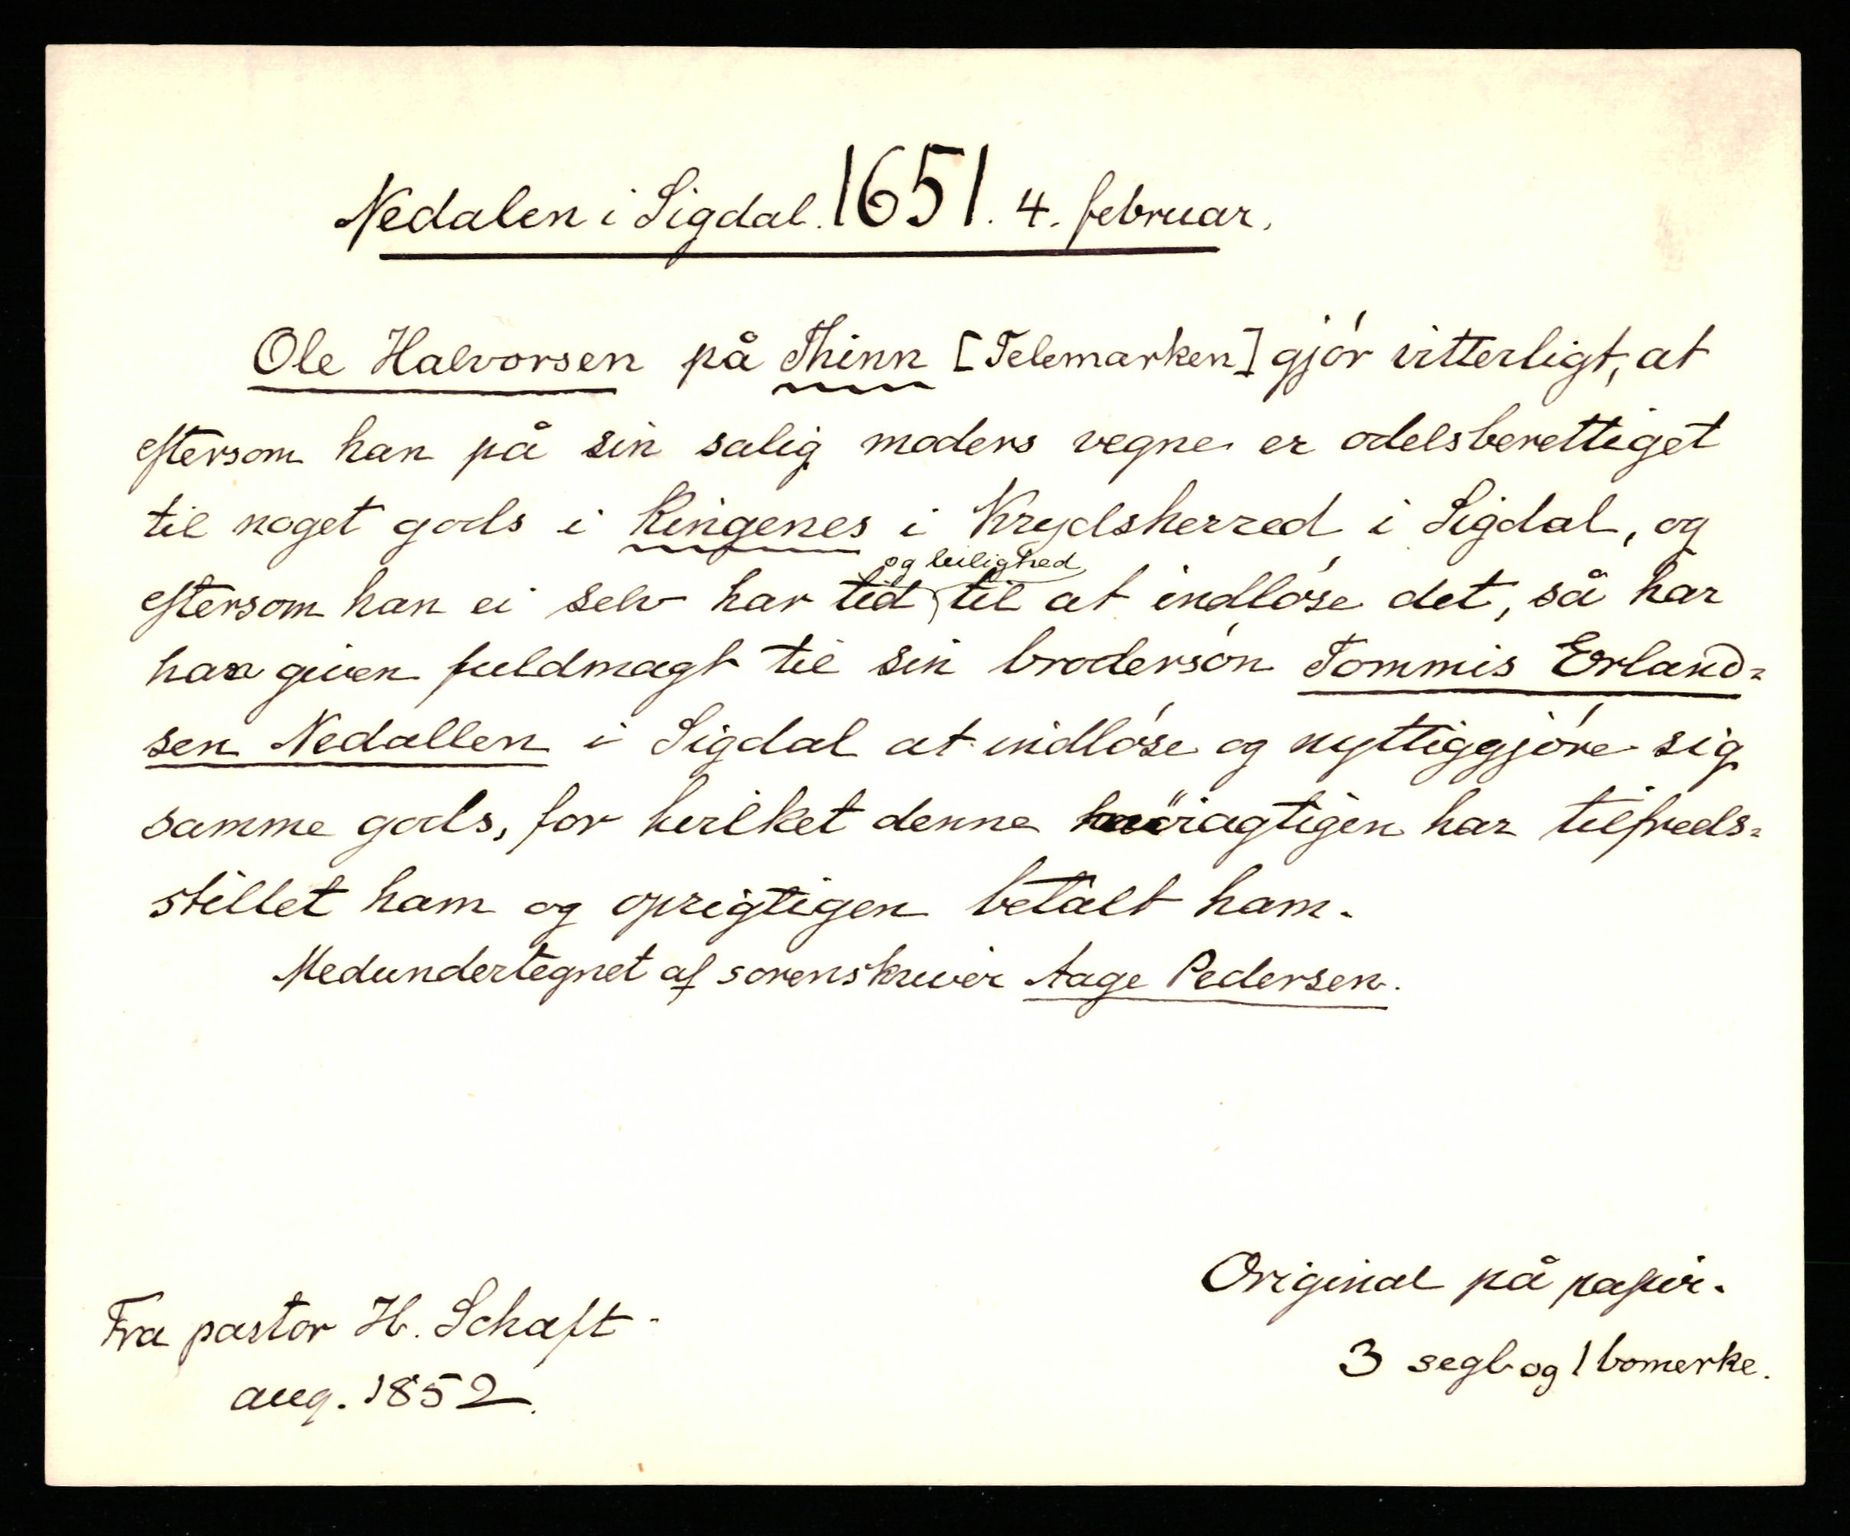 Nedalen i Sigdal. 1651. 4. februar.
Ole Halvorsen på Thinn [Telemarken] gjór vitterligt, at
eftersom han på sin salig moders vegne er odelsberettiget
til noget gods i Ringenes i Krydsherred i Sigdal, og
og leilighed
eftersom han ei selv har tid til at indlóse det, så har
han given fuldmagt til sin brodersón Tommis Erland=
sen Nedallen i Sigdal at indlóse og nyttiggjóre sig
samme gods, for hvilket denne har tilfreds=
stillet ham og oprigtigen betalt ham.
Medundertegnet af sorenskriver Aage Pedersen.
Original på papir.
3 segl og 1 bomerke.
Fra pastor H. Schaft
aug. 1852.